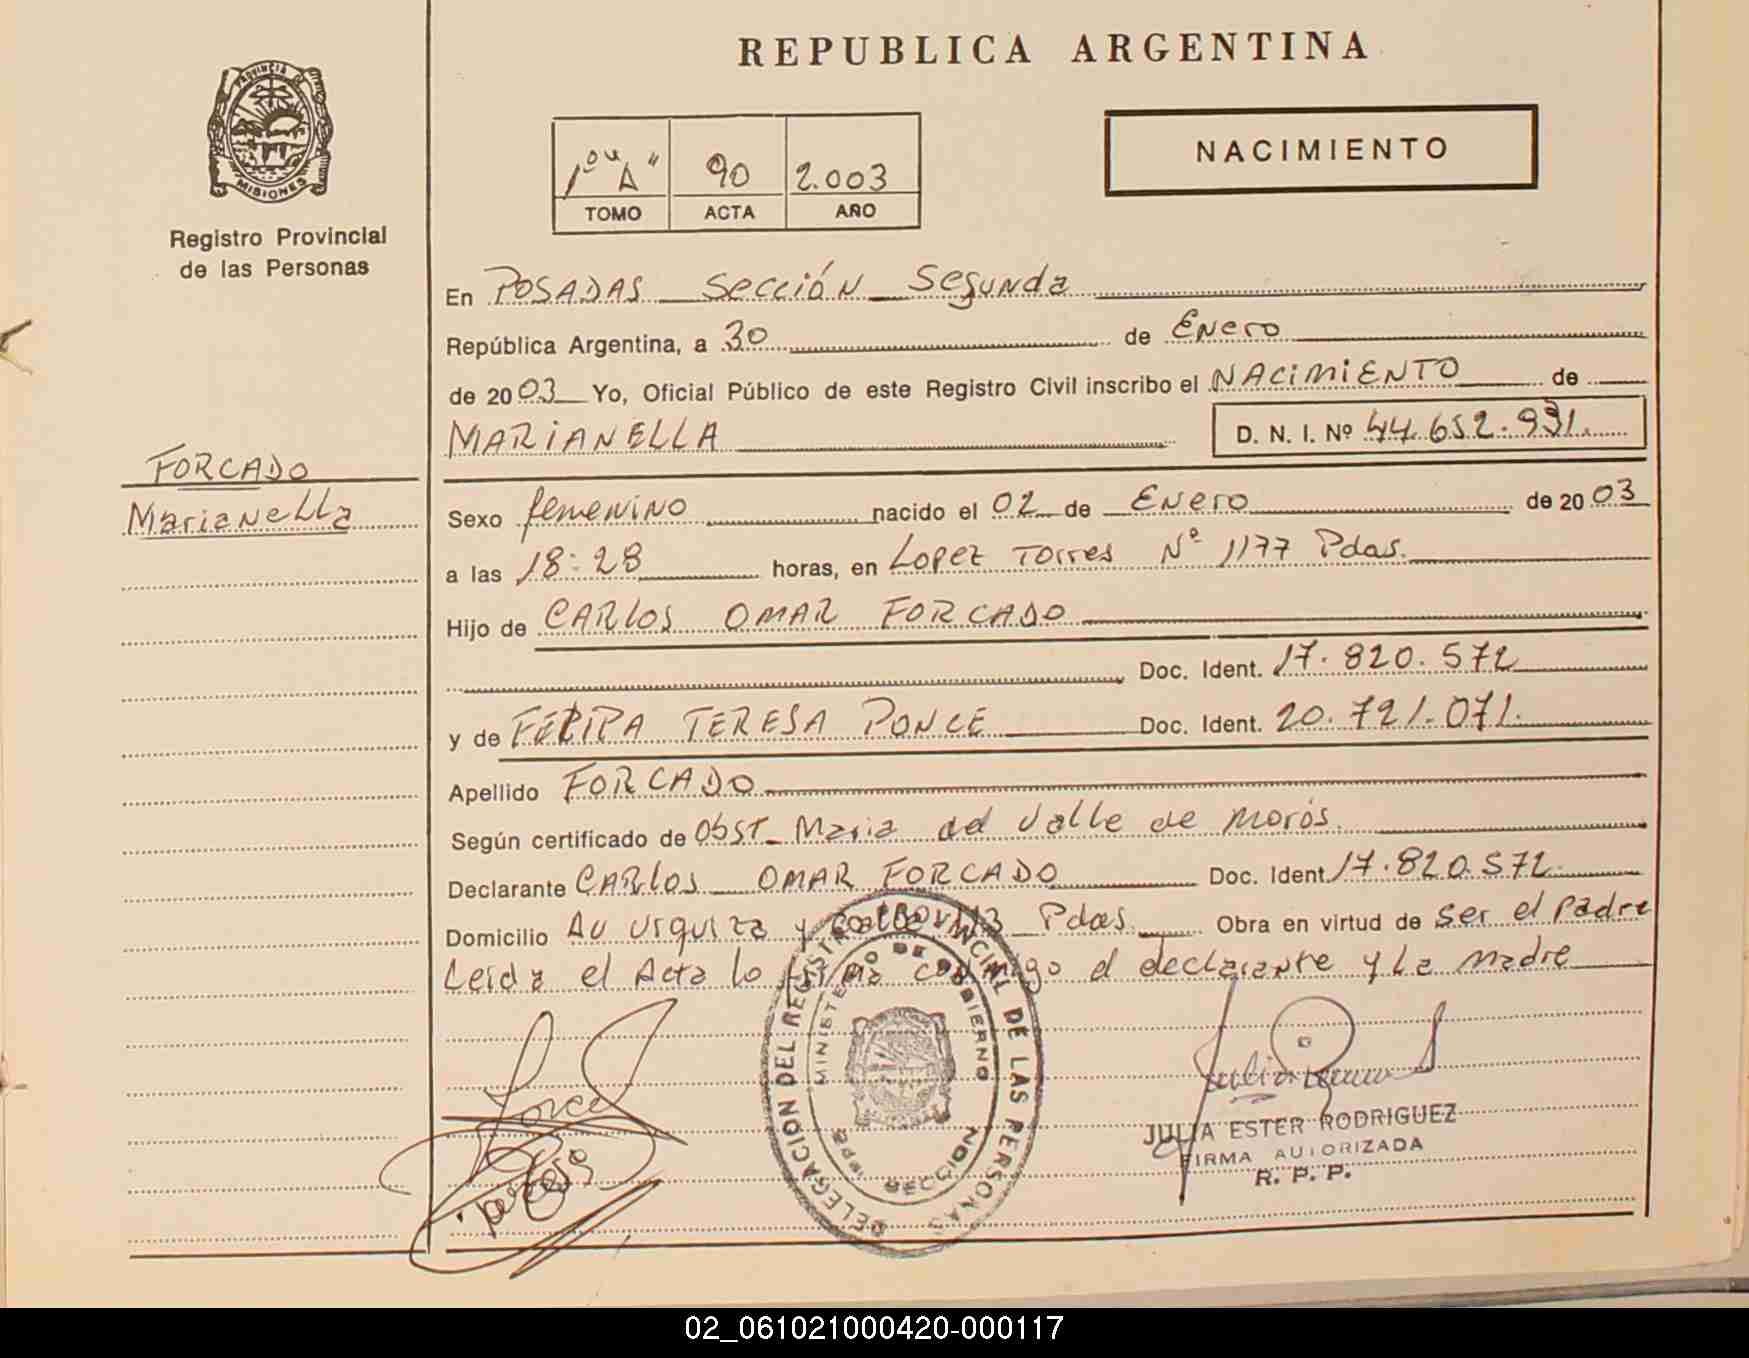 REPUBLICA ARGENTINA
PROVINCIA DE
MISIONES
Registro Provincial
de las Personas
1º "A" 90 2.003
TOMO ACTA AÑO
NACIMIENTO
En POSADAS Sección Segunda
República Argentina, a 30 de Enero
de 2003 Yo, Oficial Público de este Registro Civil inscribo el NACIMIENTO de
MARIANELLA D. N. I. Nº 44.652.931.
FORCADO
Marianella
Sexo femenino nacido el 02 de Enero de 2003
a las 18:28 horas, en Lopez Torres Nº 1177 Pdas.
Hijo de CARLOS OMAR FORCADO
Doc. Ident. 17.820.572
y de FELIPA TERESA PONCE Doc. Ident. 20.721.071.
Apellido FORCADO
Según certificado de Obst Maria del Valle de Morós.
Declarante CARLOS OMAR FORCADO Doc. Ident. 17.820.572
Domicilio Au Urquiza y Calle 113 Pdas. Obra en virtud de ser el padre
Leida el Acta lo firma conmigo el declarante y la madre
DELEGACION DEL REGISTRO PROVINCIAL DE LAS PERSONAS
MINISTERIO DE GOBIERNO
SECCION
JULIA ESTER RODRIGUEZ
FIRMA AUTORIZADA
R. P. P.
02_061021000420-000117